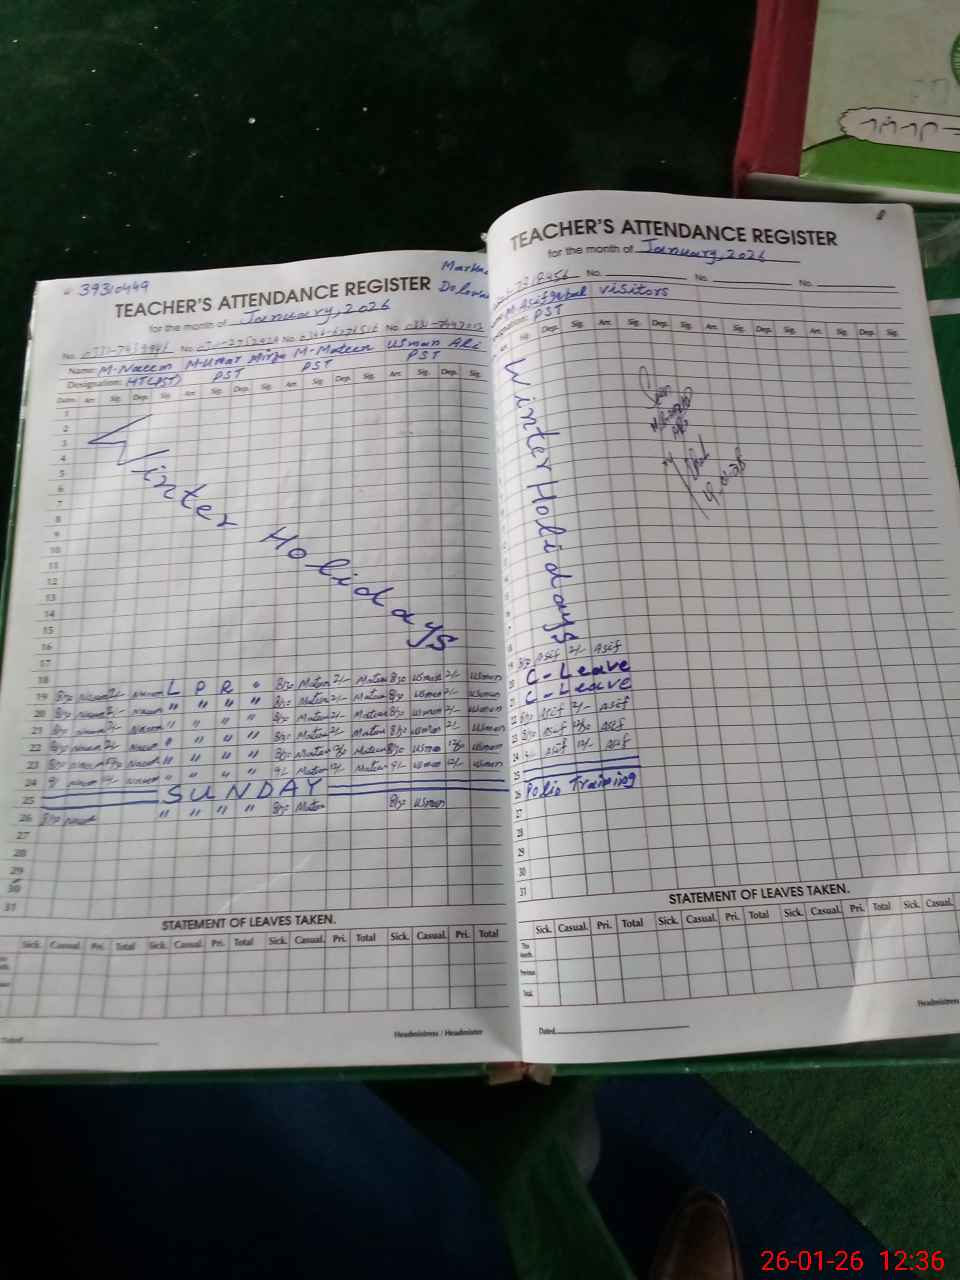 39310449
TEACHER'S ATTENDANCE REGISTER
for the month of January, 2026
No. No. No. No.
Name: M-Naeem M-Umar Mirza M-Mateen Usman Ali
Designation: HT(PST) PST PST PST
Dates Arr. Sig. Dep. Sig. Arr. Sig. Dep. Sig. Arr. Sig. Dep. Sig. Arr. Sig. Dep. Sig.
1
2
3
4
5
6
7
8
9
10
11
12
13
14
15
16
17
Winter Holidays
18
19 8/30 Naeem 2/- Naeem L P R " 8/30 Mateen 2/- Mateen 8/30 Usman 2/- Usman
20 8/30 Naeem 2/- Naeem " " " " 8/30 Mateen 2/- Mateen 8/30 Usman 2/- Usman
21 8/30 Naeem 2/- Naeem " " " " 8/30 Mateen 2/- Mateen 8/30 Usman 2/- Usman
22 8/30 Naeem 2/- Naeem " " " " 8/30 Mateen 2/- Mateen 8/30 Usman 2/- Usman
23 8/30 Naeem 12/30 Naeem " " " " 8/30 Mateen 12/30 Mateen 8/30 Usman 12/30 Usman
24 9/- Naeem 12/- Naeem " " " " 9/- Mateen 12/- Mateen 9/- Usman 12/- Usman
25 SUNDAY
26 8/30 Naeem " " " " 8/30 Mateen 8/30 Usman
27
28
29
30
31
STATEMENT OF LEAVES TAKEN.
Sick. Casual. Pri. Total Sick. Casual. Pri. Total Sick. Casual. Pri. Total Sick. Casual. Pri. Total
Dated
Headmistress / Headmister
TEACHER'S ATTENDANCE REGISTER
for the month of January, 2026
No. No. No.
M-Asif Iqbal visitors
PST
Arr. Sig. Dep. Sig. Arr. Sig. Dep. Sig. Arr. Sig. Dep. Sig. Arr. Sig. Dep. Sig.
Winter Holidays
19 8/30 Asif 2/- Asif
20 C-Leave
21 C-Leave
22 8/30 Asif 2/- Asif
23 8/30 Asif 12/30 Asif
24 9/- Asif 12/- Asif
25
26 Polio Training
27
28
29
30
31
STATEMENT OF LEAVES TAKEN.
Sick. Casual. Pri. Total Sick. Casual. Pri. Total Sick. Casual. Pri. Total Sick. Casual.
This Month.
Previous
Total
Dated
Headmistress
26-01-26 12:36